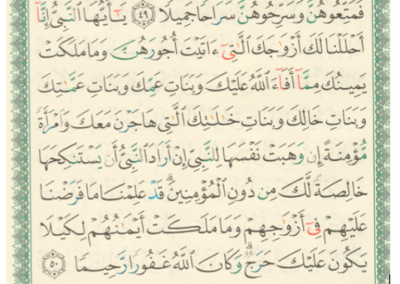 فَمَتِّعُوهُنَّ وَسَرِّحُوهُنَّ سَرَاحًا جَمِيلًا ٤٩ يَٰٓأَيُّهَا ٱلنَّبِيُّ إِنَّآ
أَحْلَلْنَا لَكَ أَزْوَٰجَكَ ٱلَّٰتِىٓ ءَاتَيْتَ أُجُورَهُنَّ وَمَا مَلَكَتْ
يَمِينُكَ مِمَّآ أَفَآءَ ٱللَّهُ عَلَيْكَ وَبَنَاتِ عَمِّكَ وَبَنَاتِ عَمَّٰتِكَ
وَبَنَاتِ خَالِكَ وَبَنَاتِ خَٰلَٰتِكَ ٱلَّٰتِى هَاجَرْنَ مَعَكَ وَٱمْرَأَةً
مُّؤْمِنَةً إِن وَهَبَتْ نَفْسَهَا لِلنَّبِيِّ إِنْ أَرَادَ ٱلنَّبِيُّ أَن يَسْتَنكِحَهَا
خَالِصَةً لَّكَ مِن دُونِ ٱلْمُؤْمِنِينَ ۗ قَدْ عَلِمْنَا مَا فَرَضْنَا
عَلَيْهِمْ فِىٓ أَزْوَٰجِهِمْ وَمَا مَلَكَتْ أَيْمَٰنُهُمْ لِكَيْلَا
يَكُونَ عَلَيْكَ حَرَجٌ ۗ وَكَانَ ٱللَّهُ غَفُورًا رَّحِيمًا ٥٠